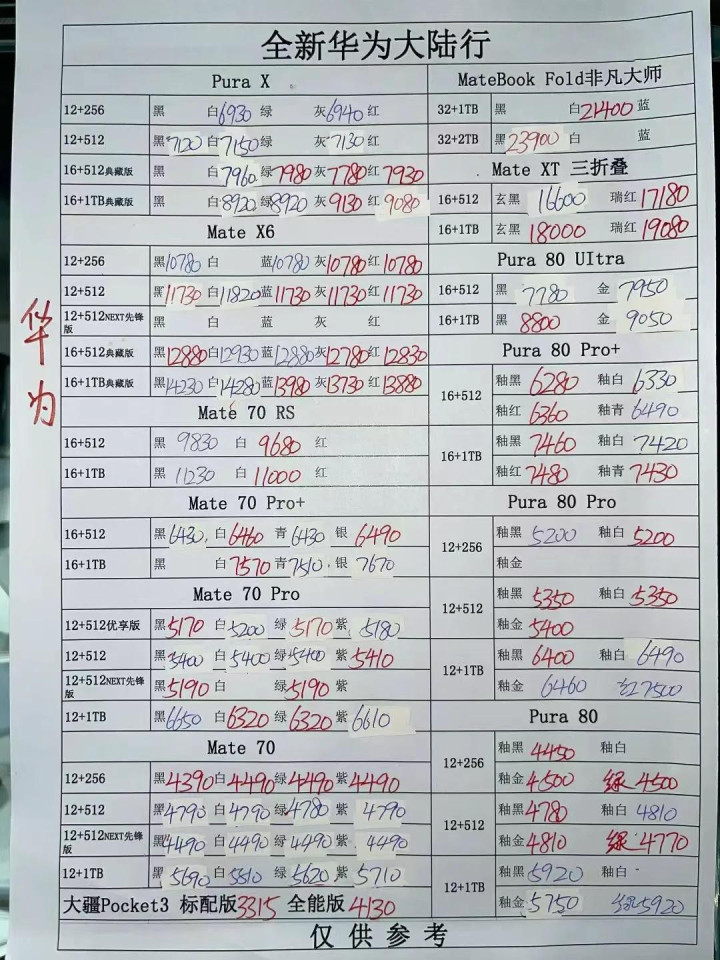 全新华为大陆行
华为
Pura X
12+256 黑 白6930 绿 灰6940 红
12+512 黑7120 白7150 绿 灰7130 红
16+512典藏版 黑 白7960 绿7980 灰7780 红7930
16+1TB典藏版 黑 白8920 绿8920 灰9130 红9080
Mate X6
12+256 黑10780 白 蓝10780 灰10780 红10780
12+512 黑11730 白11820 蓝11730 灰11730 红11730
12+512NEXT先锋版 黑 白 蓝 灰 红
16+512典藏版 黑12880 白12930 蓝12880 灰12780 红12830
16+1TB典藏版 黑14230 白14280 蓝13980 灰13730 红13880
Mate 70 RS
16+512 黑 9830 白 9680 红
16+1TB 黑 11230 白 11000 红
Mate 70 Pro+
16+512 黑6430 白6460 青6430 银 6490
16+1TB 黑 白7570 青7510 银 7670
Mate 70 Pro
12+512优享版 黑5170 白5200 绿5170 紫 5180
12+512 黑5400 白5400 绿5400 紫 5410
12+512NEXT先锋版 黑5190 白 绿5190 紫
12+1TB 黑6650 白6320 绿6320 紫6610
Mate 70
12+256 黑4390 白4490 绿4490 紫4490
12+512 黑4790 白4790 绿4780 紫 4790
12+512NEXT先锋版 黑4490 白4490 绿4490 紫 4490
12+1TB 黑5690 白5810 绿5620 紫5710
大疆Pocket3 标配版3315 全能版4130
MateBook Fold非凡大师
32+1TB 黑 白21400 蓝
32+2TB 黑23900 白 蓝
Mate XT 三折叠
16+512 玄黑 16600 瑞红17180
16+1TB 玄黑 18000 瑞红19080
Pura 80 UItra
16+512 黑 7780 金 7950
16+1TB 黑 8800 金 9050
Pura 80 Pro+
16+512 釉黑 6280 釉白 6330
釉红 6360 釉青 6490
16+1TB 釉黑 7460 釉白 7420
釉红 7480 釉青 7430
Pura 80 Pro
12+256 釉黑 5200 釉白 5200
釉金
12+512 釉黑 5350 釉白 5350
釉金 5400
12+1TB 釉黑 6400 釉白 6490
釉金 6460 红7500
Pura 80
12+256 釉黑 4450 釉白
釉金4500 绿 4500
12+512 釉黑4780 釉白 4810
釉金4810 绿 4770
12+1TB 釉黑5920 釉白
釉金5750 绿5920
仅供参考